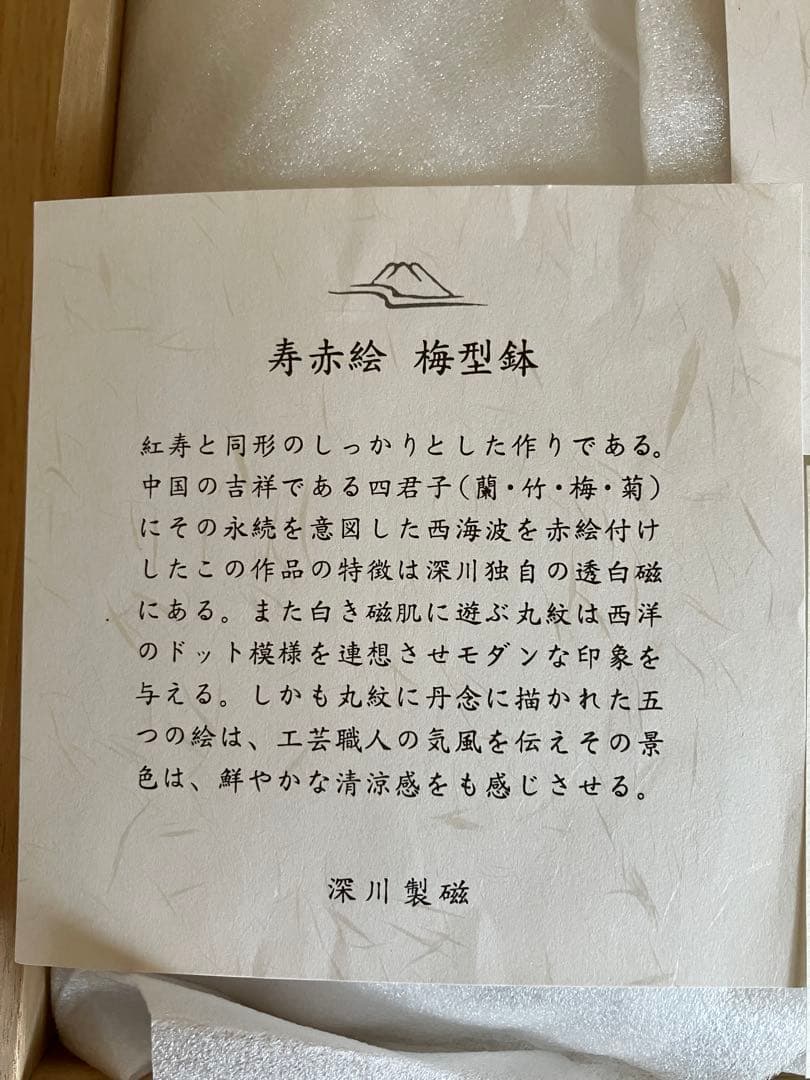 寿赤絵 梅型鉢
紅寿と同形のしっかりとした作りである。
中国の吉祥である四君子(蘭・竹・梅・菊)
にその永続を意図した西海波を赤絵付け
したこの作品の特徴は深川独自の透白磁
にある。また白き磁肌に遊ぶ丸紋は西洋
のドット模様を連想させモダンな印象を
与える。しかも丸紋に丹念に描かれた五
つの絵は、工芸職人の気風を伝えその景
色は、鮮やかな清涼感をも感じさせる。
深川製磁